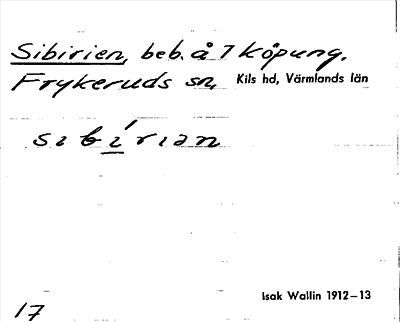 Sibirien, beb. å 7 köpung.
Frykeruds sn, Kils hd, Värmlands län
sibírian
Isak Wallin 1912–13
17